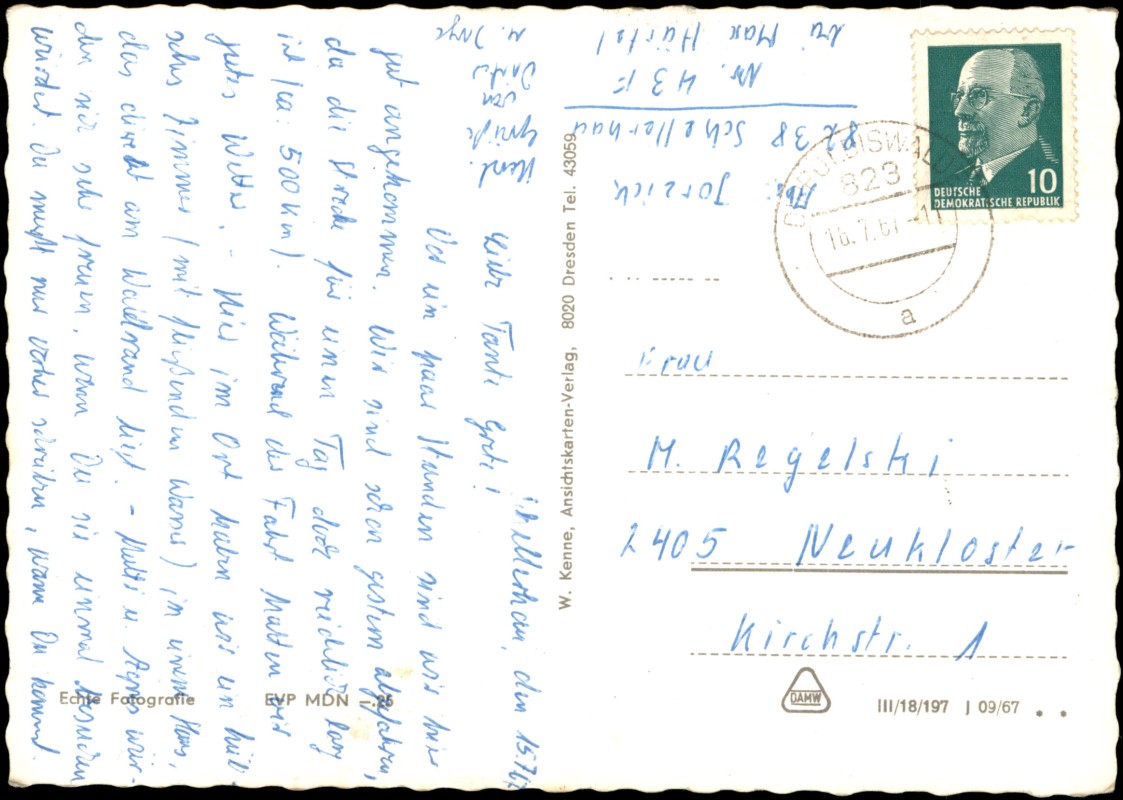 Schellerhau, den 15.7.67
Liebe Tante Grete!
Vor ein paar Stunden sind wir hier
gut angekommen. Wir sind schon gestern abgefahren,
da die Strecke für einen Tag doch reichlich lang
ist (ca: 500 km). Während der Fahrt hatten wir
gutes Wetter. - Hier im Ort haben wir ein hüb-
sches Zimmer (mit fließendem Wasser) in einem Haus,
das direkt am Waldrand liegt. - Mutti u. Agnes wür-
den sich sehr freuen, wenn Du sie einmal besuchen
würdest. Du mußt nur vorher schreiben, wann Du kommst.
Herzl.
Grüße
von
u. Inge
Abs: Jorzick
8238 Schellerhau
Nr. 43 F
bei Max Härtel
W. Kenne, Ansichtskarten-Verlag, 8020 Dresden Tel. 43059
823
16.7.67-11
a
10
DEUTSCHE
DEMOKRATISCHE REPUBLIK
Frau
M. Regelski
2405 Neukloster
Kirchstr. 1
Echte Fotografie EVP MDN
DAMW
III/18/197 J 09/67